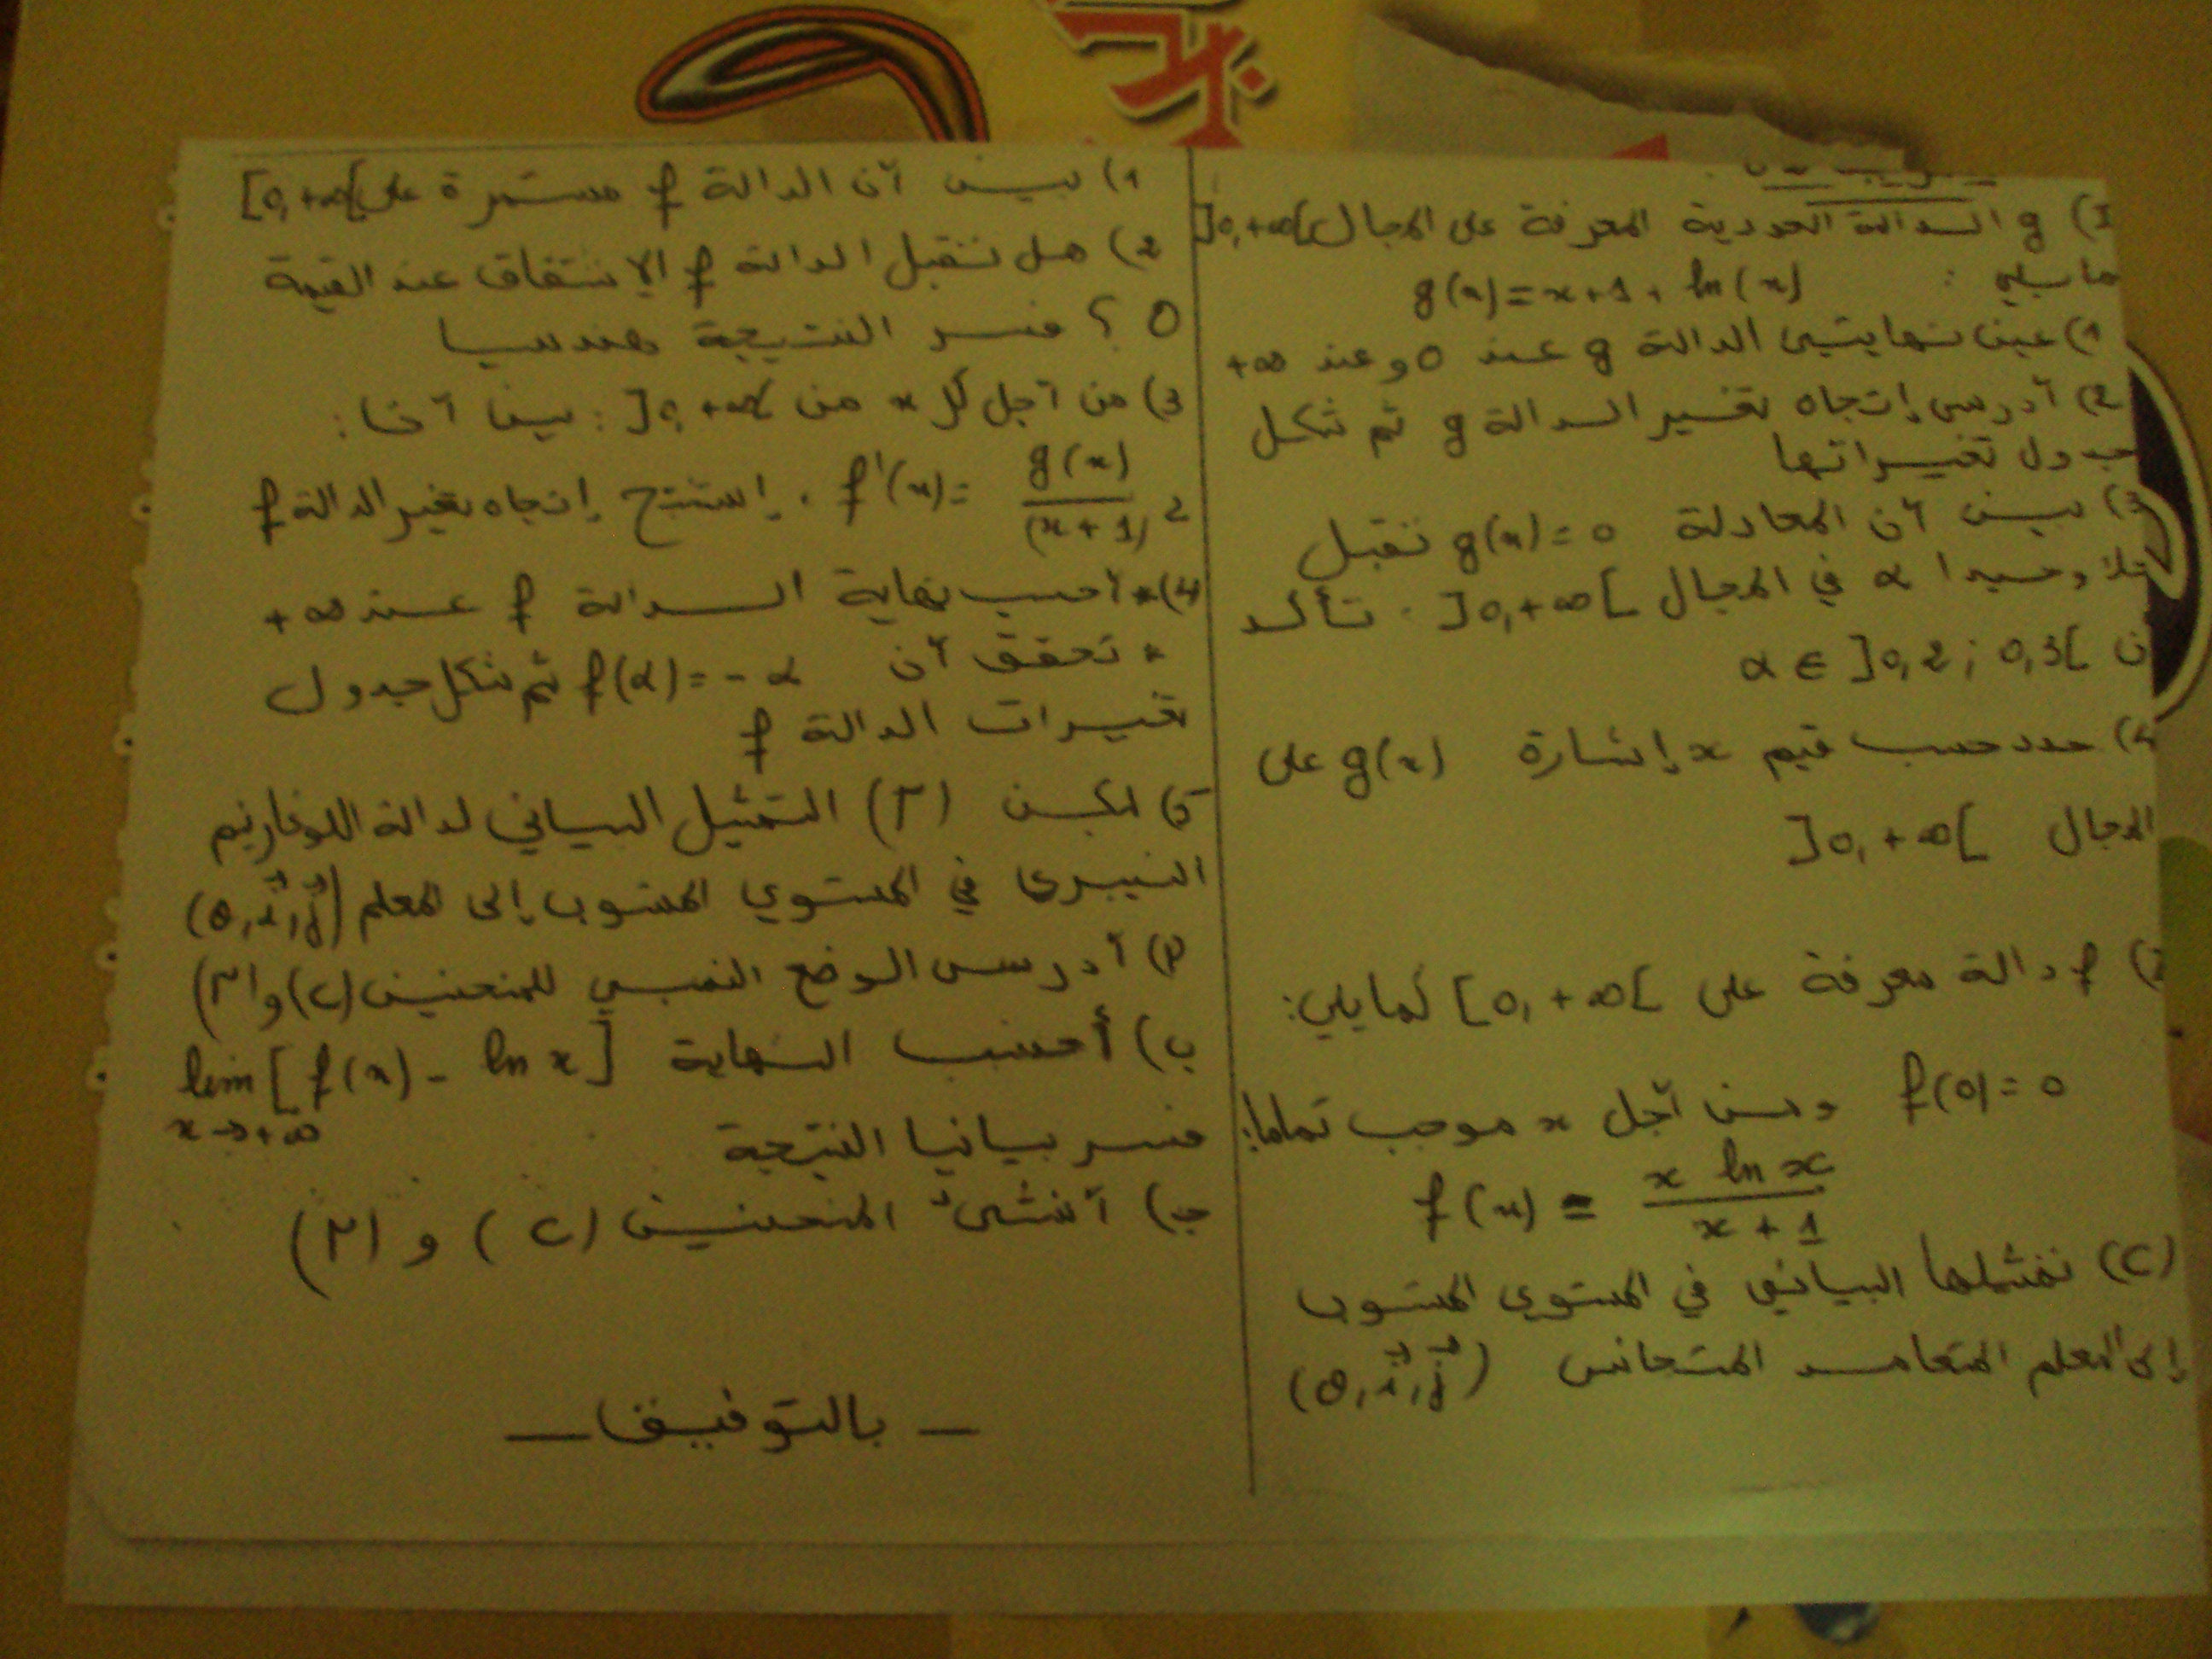 I) g الدالة العددية المعرفة على المجال ]0,+∞[
ما يلي : g(x)=x+1+ln(x)
1) عين نهايتي الدالة g عند 0 و عند +∞
2) أدرس إتجاه تغير الدالة g ثم شكل
جدول تغيراتها
3) بين أن المعادلة g(x)=0 تقبل
وحيدا α في المجال ]0,+∞[ . تأكد
α ∈ ]0,2 ; 0,3[
4) حدد حسب قيم x إشارة g(x) على
المجال ]0,+∞[
f دالة معرفة على [0,+∞[ كمايلي:
f(0)=0 ومن أجل x موجب تماما:
f(x) = \frac{x ln x}{x+1}
(C) تمثيلها البياني في المستوي المنسوب
إلى المعلم المتعامد المتجانس (O,i⃗,j⃗)
1) بين أن الدالة f مستمرة على [0,+∞[
2) هل تقبل الدالة f الإشتقاق عند القيمة
0 ؟ فسر النتيجة هندسيا
3) من أجل كل x من ]0,+∞[ : بين أن:
f'(x)= \frac{g(x)}{(x+1)^2} . إستنتج إتجاه تغير الدالة f
4)* أحسب نهاية الدالة f عند +∞
* تحقق أن f(α)=-α ثم شكل جدول
تغيرات الدالة f
5) ليكن (Γ) التمثيل البياني لدالة اللوغاريتم
النيبري في المستوي المنسوب إلى المعلم (O,i⃗,j⃗)
أ) أدرس الوضع النسبي للمنحنيين (C) و (Γ)
ب) أحسب النهاية lim [f(x) - ln x]
x→+∞
فسر بيانيا النتيجة
ج) أنشئ المنحنيين (C) و (Γ)
ـ بالتوفيق ـ